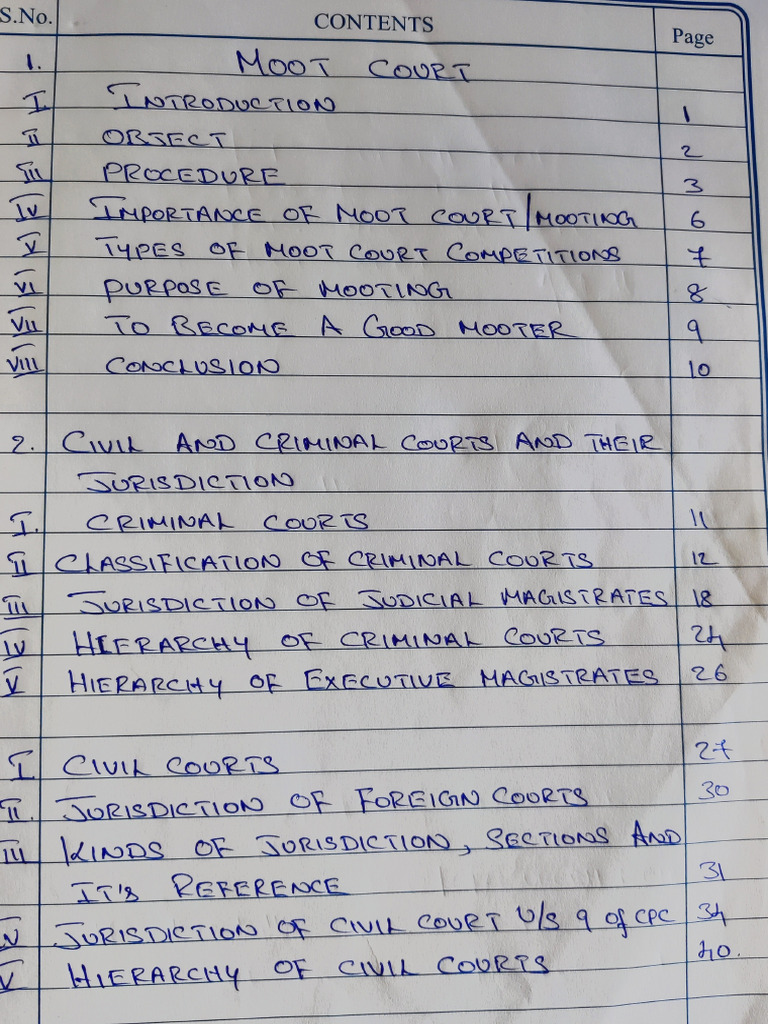 S.No. CONTENTS Page
1. MOOT COURT
I INTRODUCTION 1
II OBJECT 2
III PROCEDURE 3
IV IMPORTANCE OF MOOT COURT/MOOTING 6
V TYPES OF MOOT COURT COMPETITIONS 7
VI PURPOSE OF MOOTING 8
VII TO BECOME A GOOD MOOTER 9
VIII CONCLUSION 10
2. CIVIL AND CRIMINAL COURTS AND THEIR
JURISDICTION
I. CRIMINAL COURTS 11
II CLASSIFICATION OF CRIMINAL COURTS 12
III JURISDICTION OF JUDICIAL MAGISTRATES 18
IV HIERARCHY OF CRIMINAL COURTS 24
V HIERARCHY OF EXECUTIVE MAGISTRATES 26
I CIVIL COURTS 27
II. JURISDICTION OF FOREIGN COURTS 30
III KINDS OF JURISDICTION, SECTIONS AND
IT'S REFERENCE 31
IV JURISDICTION OF CIVIL COURT U/S 9 of CPC 34
V HIERARCHY OF CIVIL COURTS 40.